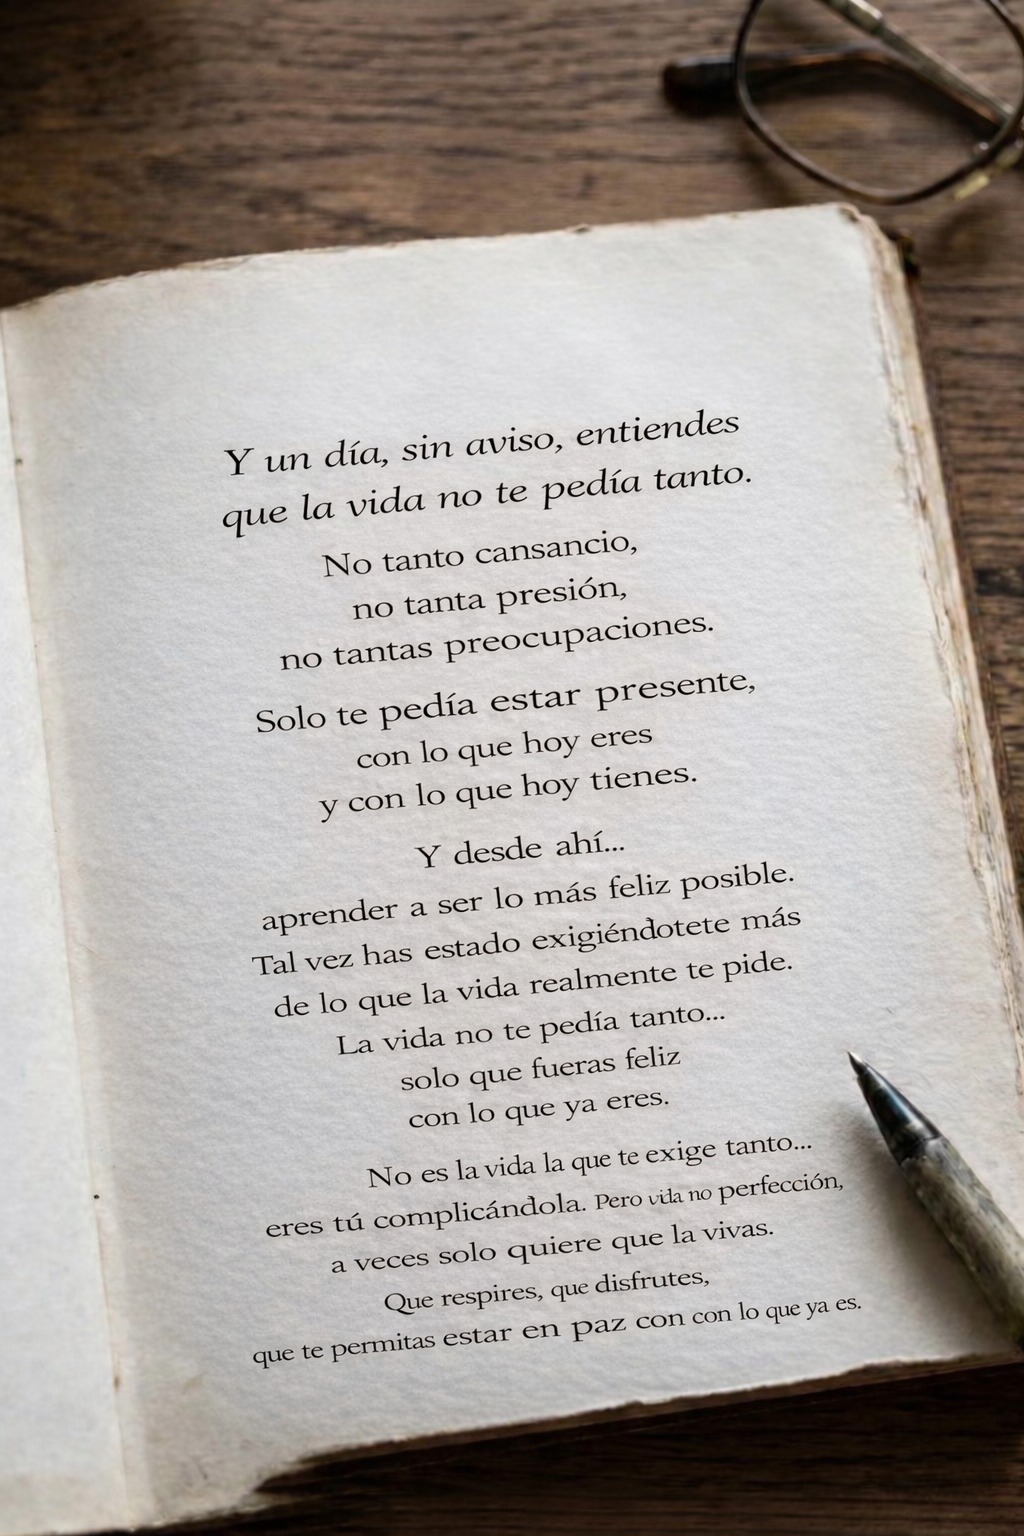 Y un día, sin aviso, entiendes
que la vida no te pedía tanto.
No tanto cansancio,
no tanta presión,
no tantas preocupaciones.
Solo te pedía estar presente,
con lo que hoy eres
y con lo que hoy tienes.
Y desde ahí...
aprender a ser lo más feliz posible.
Tal vez has estado exigiéndotete más
de lo que la vida realmente te pide.
La vida no te pedía tanto...
solo que fueras feliz
con lo que ya eres.
No es la vida la que te exige tanto...
eres tú complicándola. Pero vida no perfección,
a veces solo quiere que la vivas.
Que respires, que disfrutes,
que te permitas estar en paz con con lo que ya es.